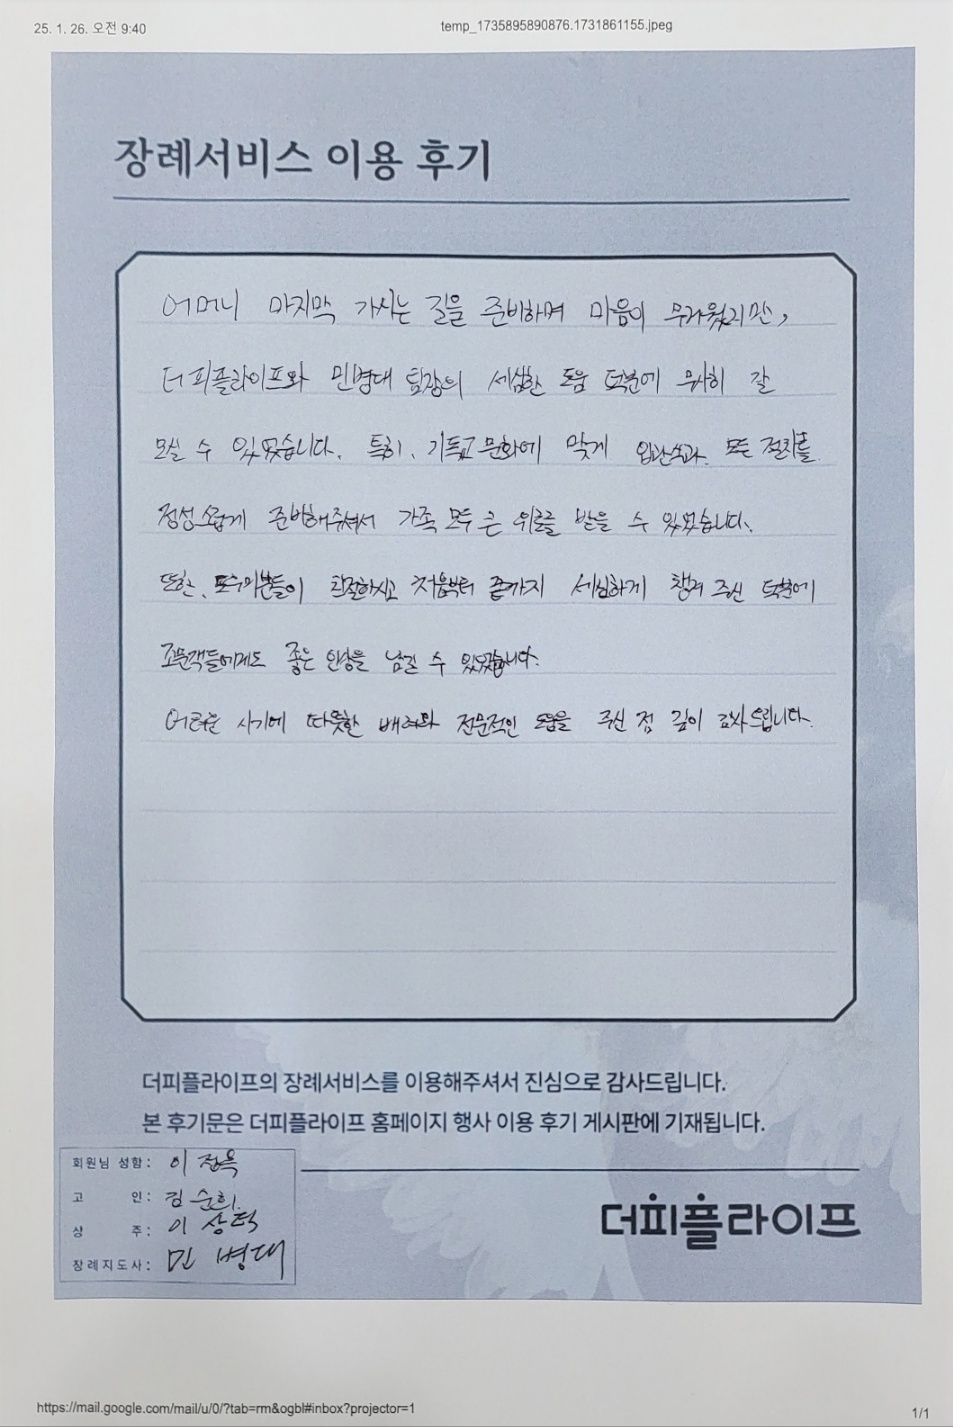 25. 1. 26. 오전 9:40
temp_1735895890876.1731861155.jpeg
장례서비스 이용 후기
어머니 마지막 가시는 길을 준비하며 마음이 무거웠지만,
더피플라이프와 민병대 팀장의 세심한 도움 덕분에 무사히 잘
모실 수 있었습니다. 특히, 기독교 문화에 맞게 입관식과 모든 절차를
정성스럽게 준비해주셔서 가족 모두 큰 위로를 받을 수 있었습니다.
또한, 도우미분들이 친절하시고 처음부터 끝까지 세심하게 챙겨 주신 덕분에
조문객들에게도 좋은 인상을 남길 수 있었습니다.
어려운 시기에 따뜻한 배려와 전문적인 도움을 주신 점 깊이 감사드립니다.
더피플라이프의 장례서비스를 이용해주셔서 진심으로 감사드립니다.
본 후기문은 더피플라이프 홈페이지 행사 이용 후기 게시판에 기재됩니다.
회원님 성함: 이정옥
고 인: 김순희
상 주: 이상덕
장례지도사: 민병대
더피플라이프
https://mail.google.com/mail/u/0/?tab=rm&ogbl#inbox?projector=1
1/1